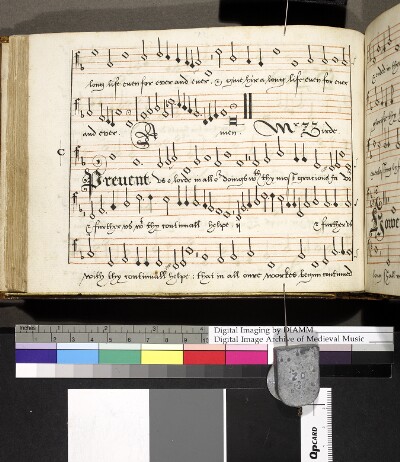 long life even for ever and ever. & give hir a long life even for ever
and ever. A men. Mr Birde.
C
Prevent vs o lorde in all or doings wth thy most gracious fa vo
& further vs wth thy continuall helpe ij & further vs
with thy continuall helpe : that in all oure workes begun continued
inches 1 2 3 4
Digital Imaging by DIAMM
Digital Image Archive of Medieval Music
QPCARD